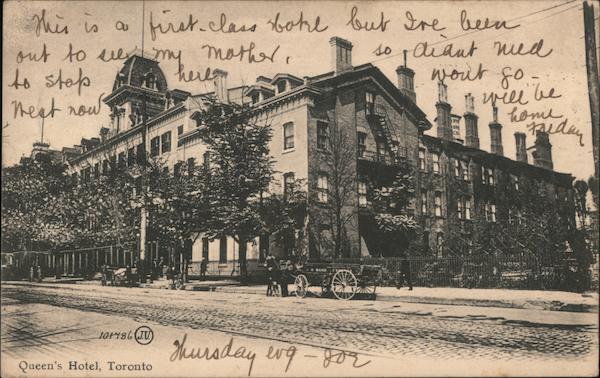 This is a first-class Hotel but I've been
out to see my mother, so didnt need
to stop here wont go
West now will be
home today
101786 JV
Queen's Hotel, Toronto
Thursday evg -